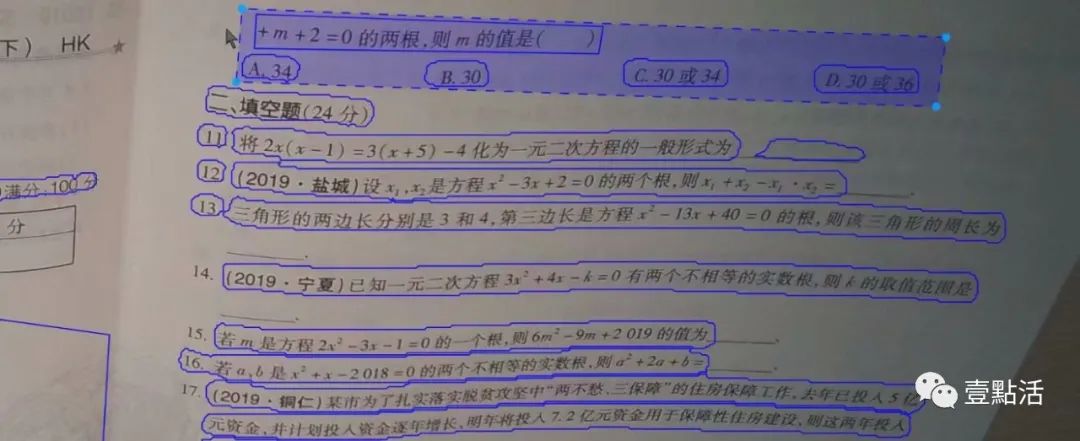 下） HK
+m+2=0的两根,则m的值是(  )
A. 34 B. 30 C. 30或34 D. 30或36
二、填空题(24分)
11 将2x(x-1)=3(x+5)-4化为一元二次方程的一般形式为
12 (2019·盐城)设x₁,x₂是方程x²-3x+2=0的两个根,则x₁+x₂-x₁·x₂=______.
满分:100分
13. 三角形的两边长分别是3和4,第三边长是方程x²-13x+40=0的根,则该三角形的周长为
______.
分
14. (2019·宁夏)已知一元二次方程3x²+4x-k=0有两个不相等的实数根,则k的取值范围是
______.
15. 若m是方程2x²-3x-1=0的一个根,则6m²-9m+2 019的值为______.
16. 若a,b是x²+x-2 018=0的两个不相等的实数根,则a²+2a+b=______.
17. (2019·铜仁)某市为了扎实落实脱贫攻坚中“两不愁、三保障”的住房保障工作,去年已投入5亿
元资金,并计划投入资金逐年增长,明年将投入7.2亿元资金用于保障性住房建设,则这两年投入
壹點活